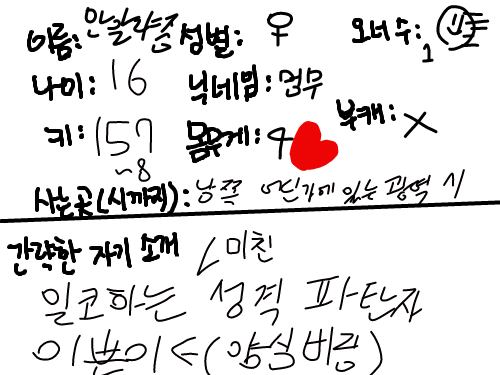 이름: 안알랴줌 성별: ♀ 오너 수: 1
나이: 16 닉네임: 연무
키: 157 ~8 몸무게: 4 부캐: X
사는곳(시까지): 남쪽 어딘가에 있는 광역 시
간략한 자기 소개 미친
일코하는 성격 파탄자
이쁜이 ← (양심버림)